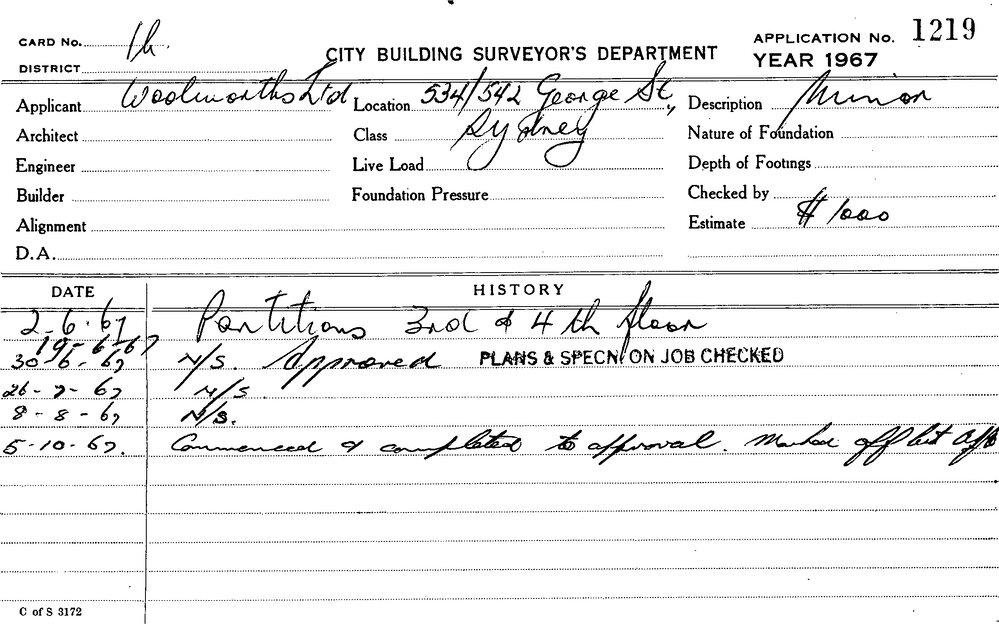 CARD No. 1h. CITY BUILDING SURVEYOR'S DEPARTMENT APPLICATION No. 1219
DISTRICT YEAR 1967
Applicant Woolworths Ltd Location 534/542 George St., Description Minor
Architect Class Sydney Nature of Foundation
Engineer Live Load Depth of Footings
Builder Foundation Pressure Checked by
Alignment Estimate $1000
D.A.
DATE HISTORY
2-6-67 Partitions 3rd & 4th floor
19-6-67 Approved PLANS & SPECN. ON JOB CHECKED
30-6-67 N/S.
26-7-67 N/S
8-8-67 N/S.
5-10-67. Commenced & completed to approval. Marked off list
C of S 3172